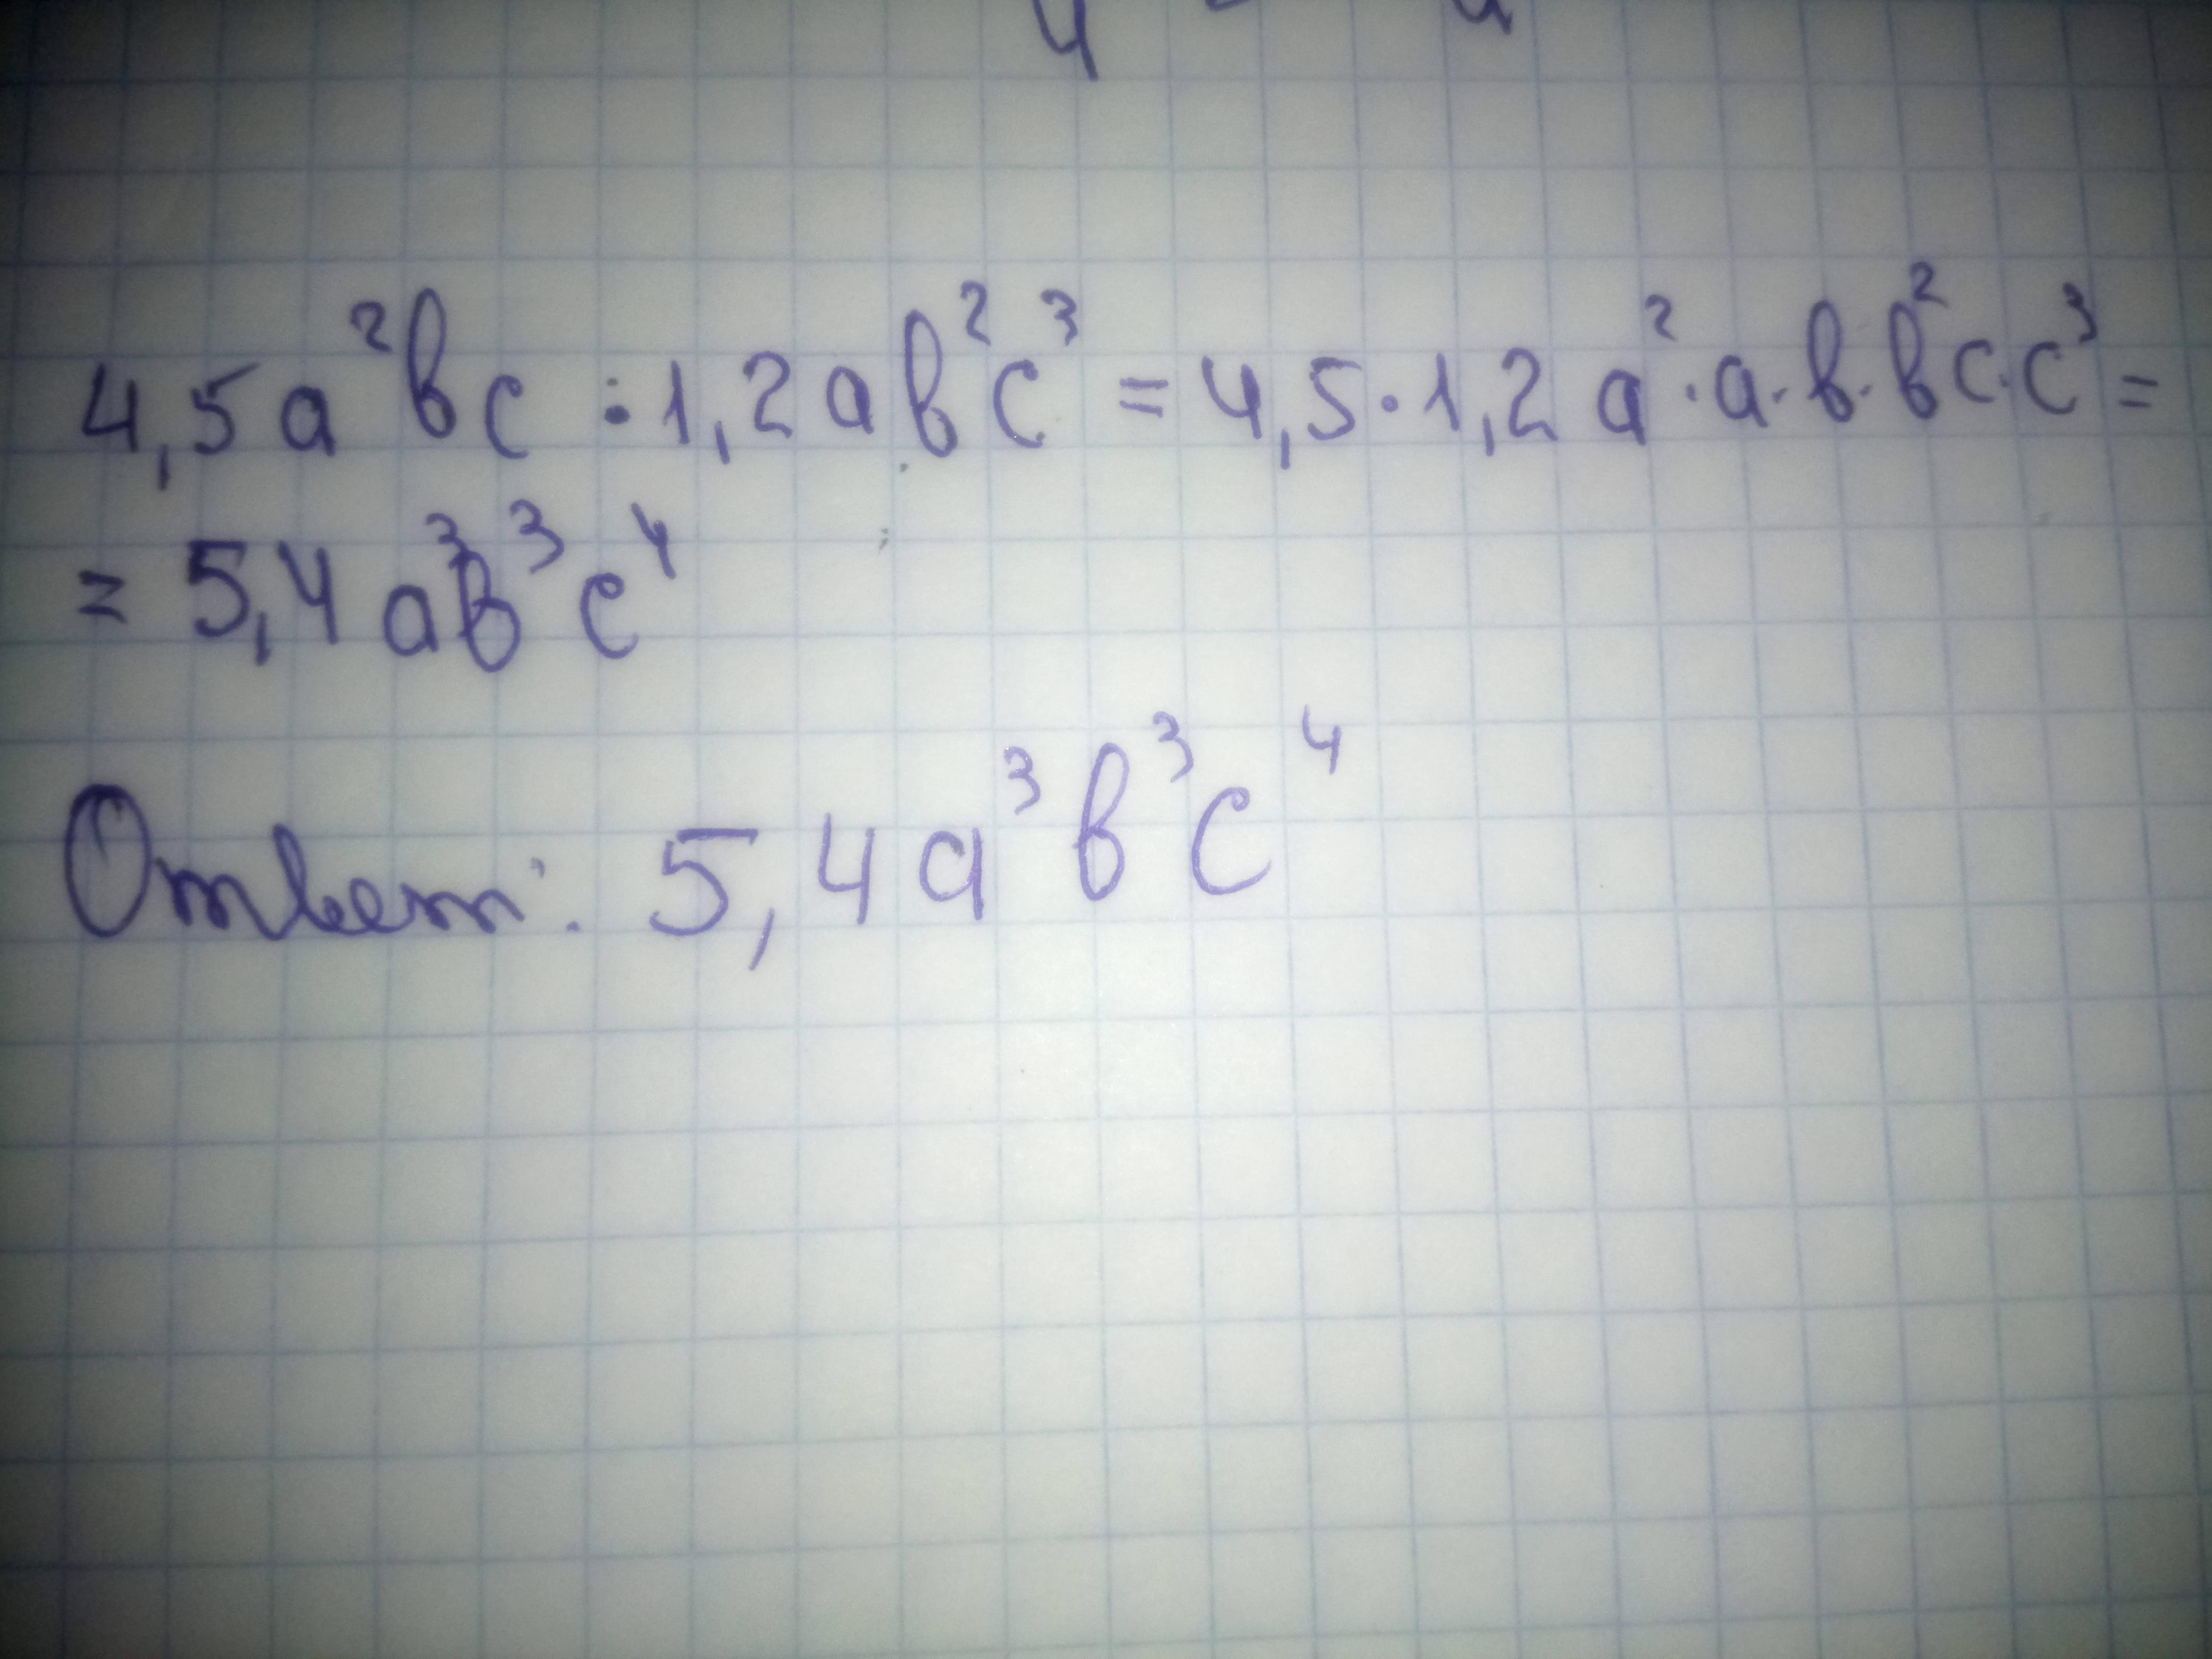 4,5a²bc · 1,2ab²c³ = 4,5·1,2a²·a·b·b²c·c³ =
= 5,4a³b³c⁴
Ответ: 5,4a³b³c⁴